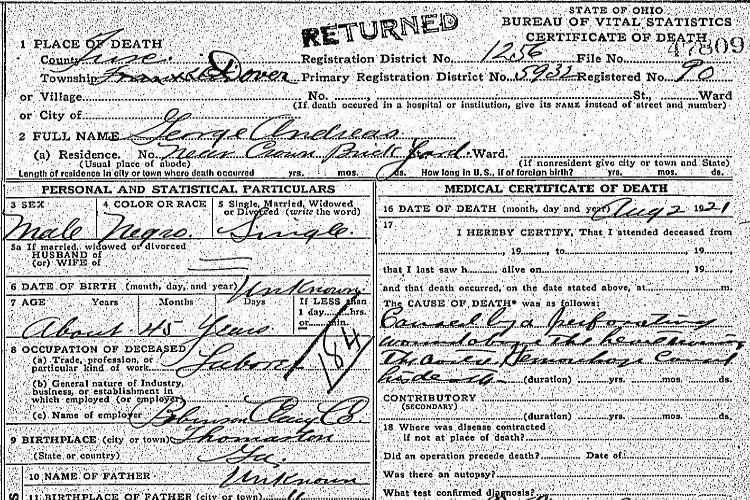 RETURNED
STATE OF OHIO
BUREAU OF VITAL STATISTICS
CERTIFICATE OF DEATH
47809
1 PLACE OF DEATH
County Tusc.
Registration District No. 1256 File No.
Township Dover Primary Registration District No. 5932 Registered No. 90
or Village No. St., Ward
(If death occured in a hospital or institution, give its NAME instead of street and number)
or City of
2 FULL NAME George Andreas
(a) Residence. No. Near Crown Brick Yard. Ward.
(Usual place of abode) (If nonresident give city or town and State)
Length of residence in city or town where death occurred yrs. mos. ds. How long in U. S., if of foreign birth? yrs. mos. ds.
PERSONAL AND STATISTICAL PARTICULARS
3 SEX
4 COLOR OR RACE
5 Single, Married, Widowed
or Divorced (write the word)
Male Negro. Single.
5a If married, widowed or divorced
HUSBAND of
(or) WIFE of
6 DATE OF BIRTH (month, day, and year) Unknown
7 AGE Years Months Days
If LESS than
1 day, hrs.
or min.
About 45 Years
184
8 OCCUPATION OF DECEASED
(a) Trade, profession, or
particular kind of work. Laborer
(b) General nature of Industry,
business, or establishment in
which employed (or employer)
(c) Name of employer Robinson Clay Co.
9 BIRTHPLACE (city or town) Thomaston
(State or country) Ga.
10 NAME OF FATHER Unknown
11 BIRTHPLACE OF FATHER (city or town) "
MEDICAL CERTIFICATE OF DEATH
16 DATE OF DEATH (month, day and year) Aug 2 1921
17
I HEREBY CERTIFY, That I attended deceased from
, 19 , to , 19 ,
that I last saw h alive on , 19 ,
and that death occurred, on the date stated above, at m.
The CAUSE OF DEATH* was as follows:
Caused by a perforating
wound above the heart
the Hemorrhage
(duration) yrs. mos. ds.
CONTRIBUTORY
(SECONDARY)
(duration) yrs. mos. ds.
18 Where was disease contracted
if not at place of death?
Did an operation precede death? Date of
Was there an autopsy?
What test confirmed diagnosis?